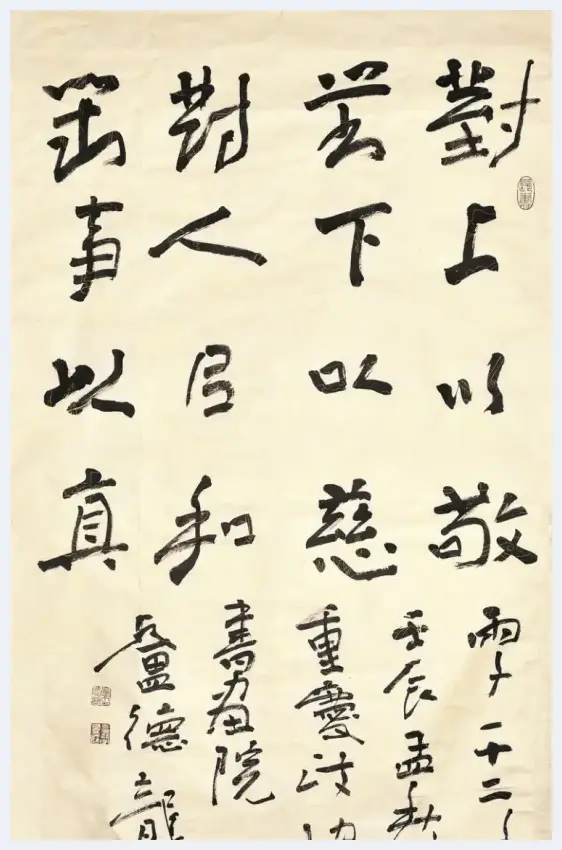 對上以敬
對下以慈
對人以和
對事以真
雨于一二
壬辰孟秋
重慶政協
書畫院
盧德龍